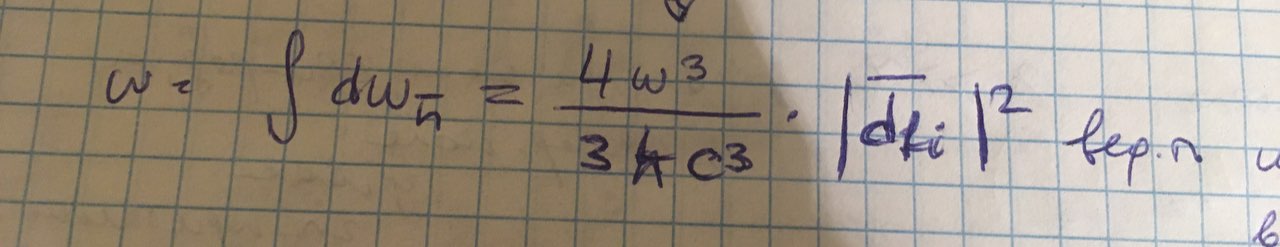 w = ∫ dw_n̄ = 4ω³ / 3ħc³ · |d̅_fi|² вер.п
в